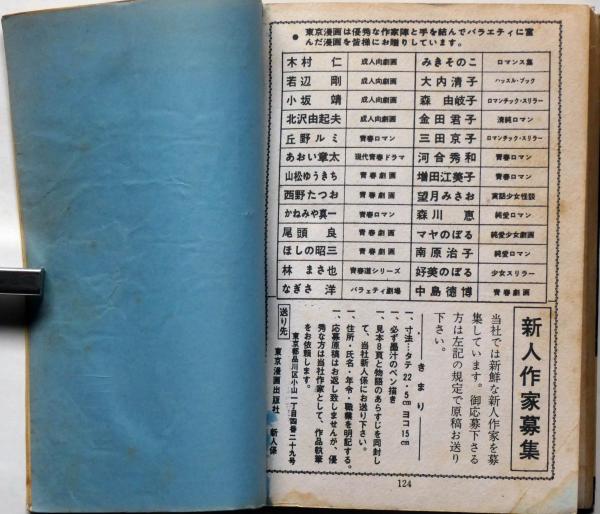 ● 東京漫画は優秀な作家陣と手を結んでバラエティに富
んだ漫画を皆様にお贈りしています。
木村 仁 成人向劇画 みきそのこ ロマンス集
若辺 剛 成人向劇画 大内清子 ハッスル・ブック
小坂 靖 成人向劇画 森 由岐子 ロマンチック・スリラー
北沢由起夫 成人向劇画 金田君子 清純ロマン
丘野ルミ 青春ロマン 三田京子 ロマンチック・スリラー
あおい章太 現代青春ドラマ 河合秀和 青春ロマン
山松ゆうきち 青春劇画 増田江美子 青春ロマン
西野たつお 青春劇画 望月みさお 実話少女怪談
かねみや真一 青春ロマン 森川 恵 純愛ロマン
尾頭 良 青春劇画 マヤのぼる 純愛少女劇画
ほしの昭三 青春劇画 南原治子 純愛ロマン
林 まさ也 青春道シリーズ 好美のぼる 少女スリラー
なぎさ 洋 バラェティ劇場 中島徳博 青春劇画
新人作家募集
当社では新鮮な新人作家を募
集しています。御応募下さる
方は左記の規定で原稿お送り
下さい。
・きまり
一、寸法…タテ22.5cmヨコ15cm
一、必ず墨汁のペン描き
一、見本8頁と物語のあらすじを同封し
て、当社新人係にお送り下さい。
一、住所・氏名・年令・職業を明記する。
一、応募原稿はお返し致しませんが、優
秀な方は当社作家として、作品執筆
をお依頼します。
送り先
東京都品川区小山一丁目四番二十九号
東京漫画出版社 新人係
124